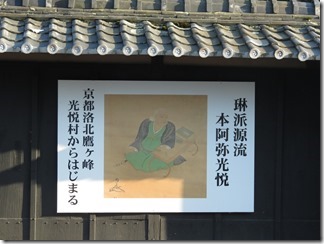 琳派源流
本阿弥光悦
京都洛北鷹ヶ峰
光悦村からはじまる